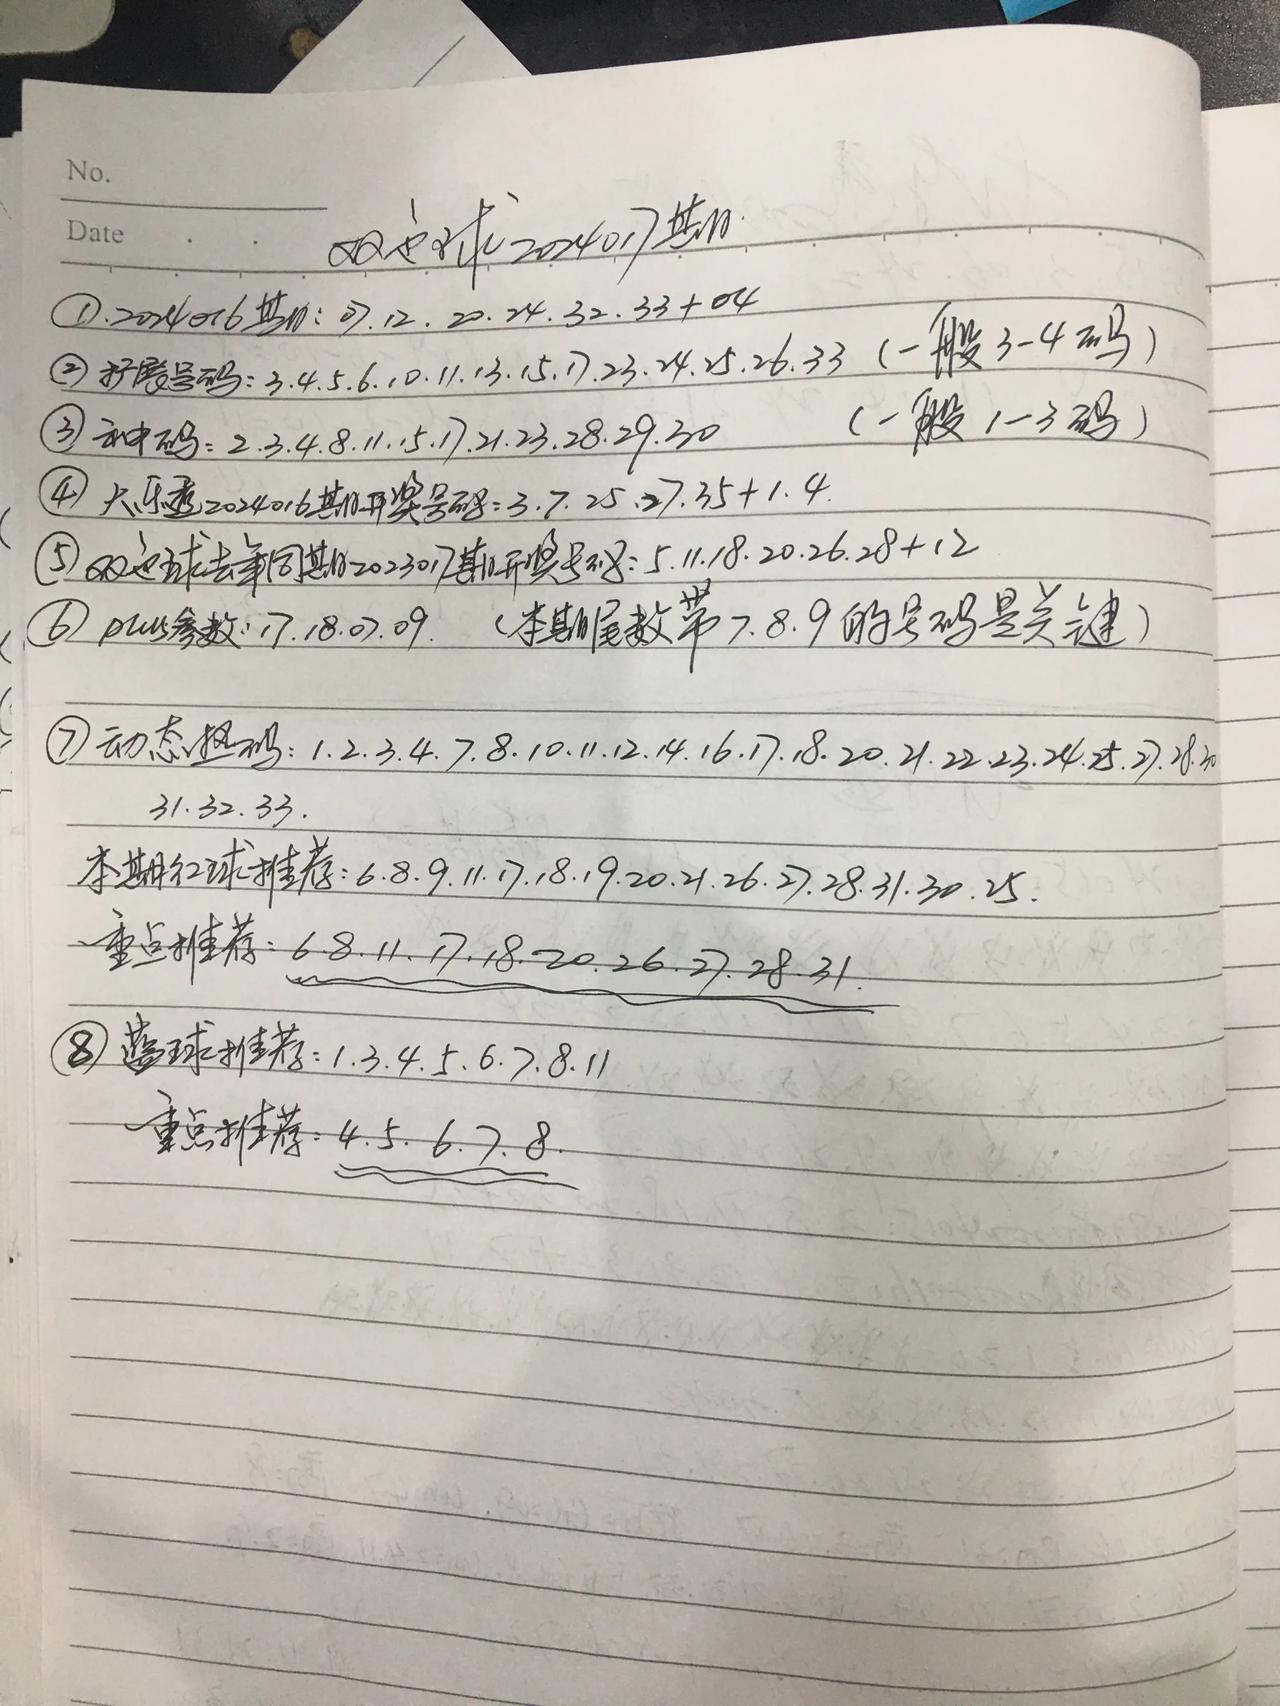 No.
Date
双色球2024017期
①.2024016期:07.12.20.24.32.33+04
②扩展号码:3.4.5.6.10.11.13.15.17.23.24.25.26.33 (一般3-4码)
③和中码:2.3.4.8.11.15.17.21.23.28.29.30 (一般1-3码)
④大乐透2024016期开奖号码:3.7.25.27.35+1.4.
⑤双色球去年同期2023017期开奖号码:5.11.18.20.26.28+12
⑥plus参数:17.18.07.09. (本期尾数带7.8.9的号码是关键)
⑦动态热码:1.2.3.4.7.8.10.11.12.14.16.17.18.20.21.22.23.24.25.27.28.30
31.32.33.
本期红球推荐:6.8.9.11.17.18.19.20.21.26.27.28.31.30.25.
重点推荐:6.8.11.17.18.20.26.27.28.31.
⑧蓝球推荐:1.3.4.5.6.7.8.11
重点推荐:4.5.6.7.8.